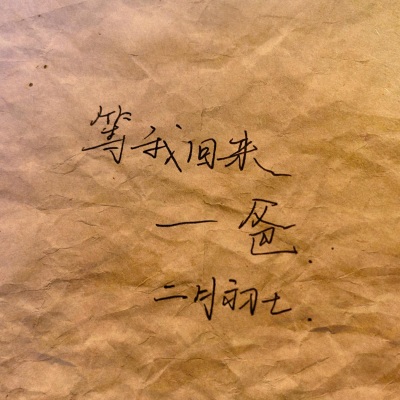 等我回来
—爸.
二月初七.